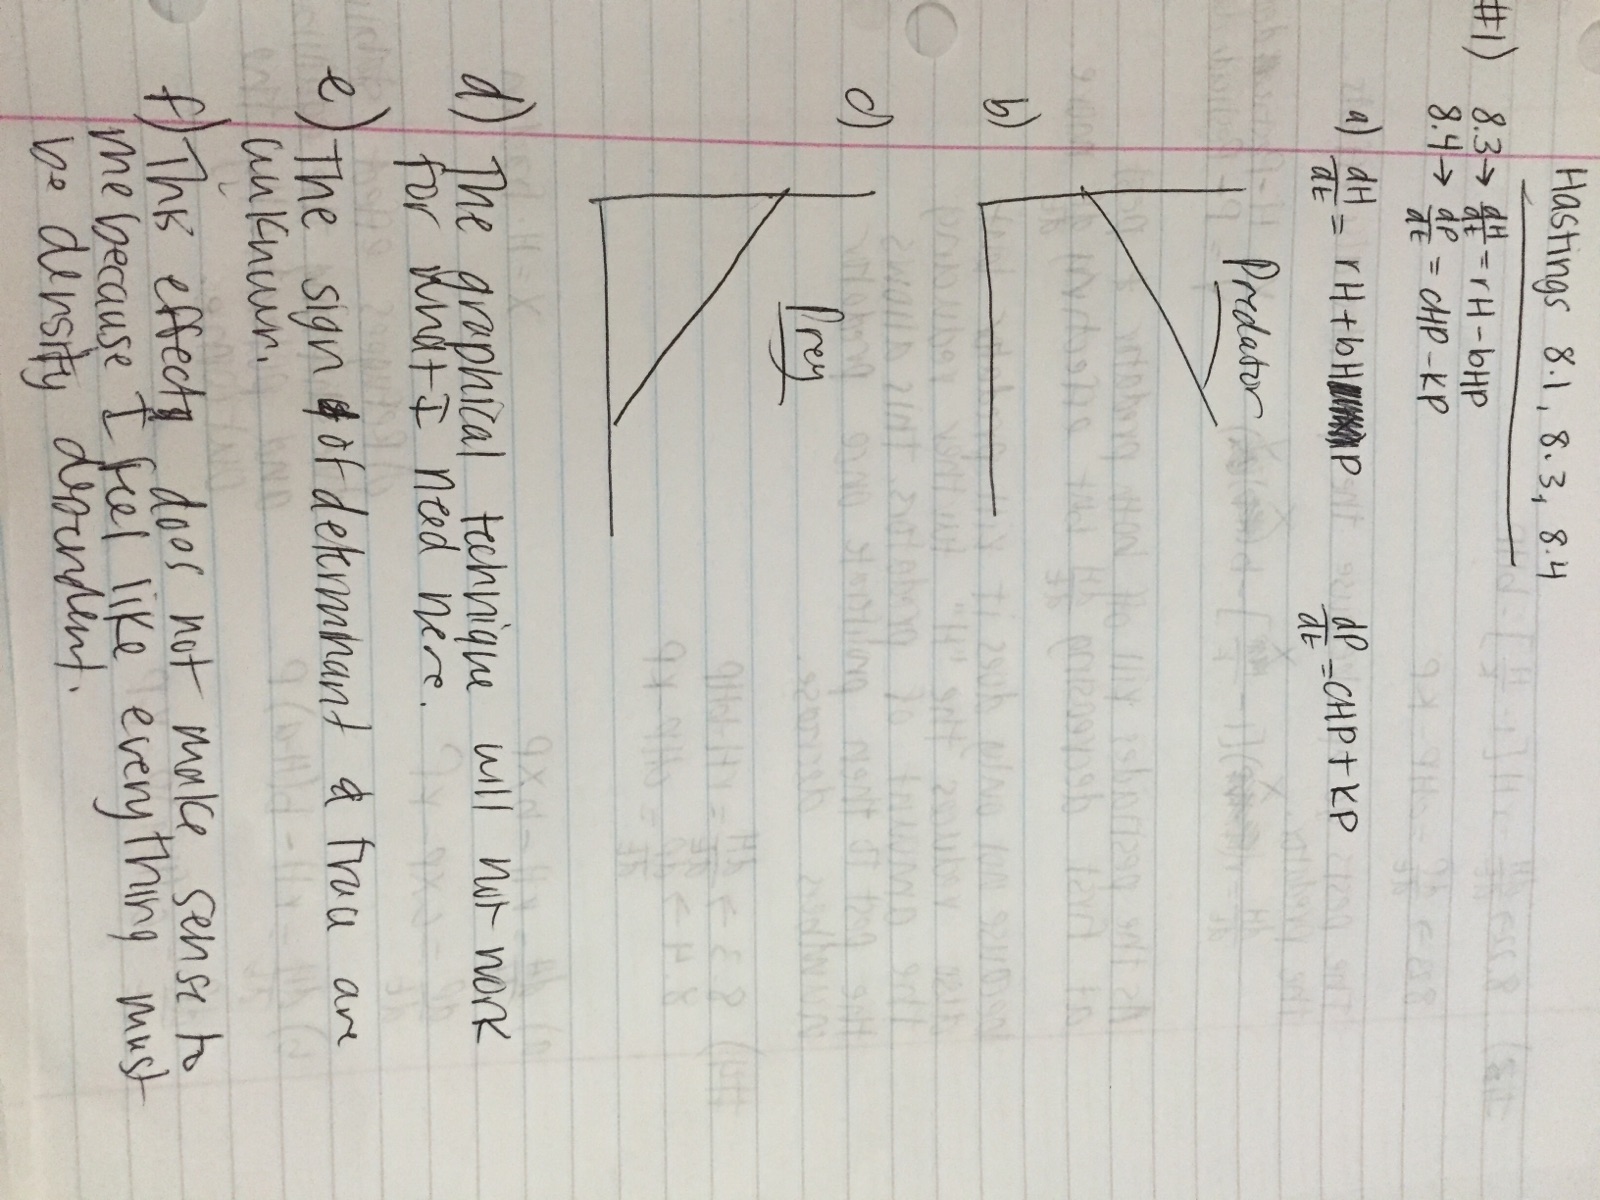 Hastings 8.1, 8.3, 8.4
#1) 8.3→ dH/dt = rH - bHP
8.4→ dP/dt = cHP - kP
a) dH/dt = rH + bHP dP/dt = cHP + KP
b) Predator
c) Prey
d) The graphical technique will not work
for what I need here.
e) The sign of determinant & trace are
unknown.
f) This effect does not make sense to
me because I feel like everything must
be density dependent.